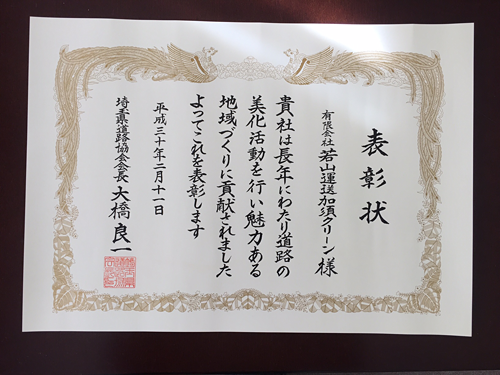 表彰状
有限会社 若山運送加須クリーン 様
貴社は長年にわたり道路の
美化活動を行い魅力ある
地域づくりに貢献されました
よってこれを表彰します
平成三十年二月十一日
埼玉県道路協会会長 大橋良一